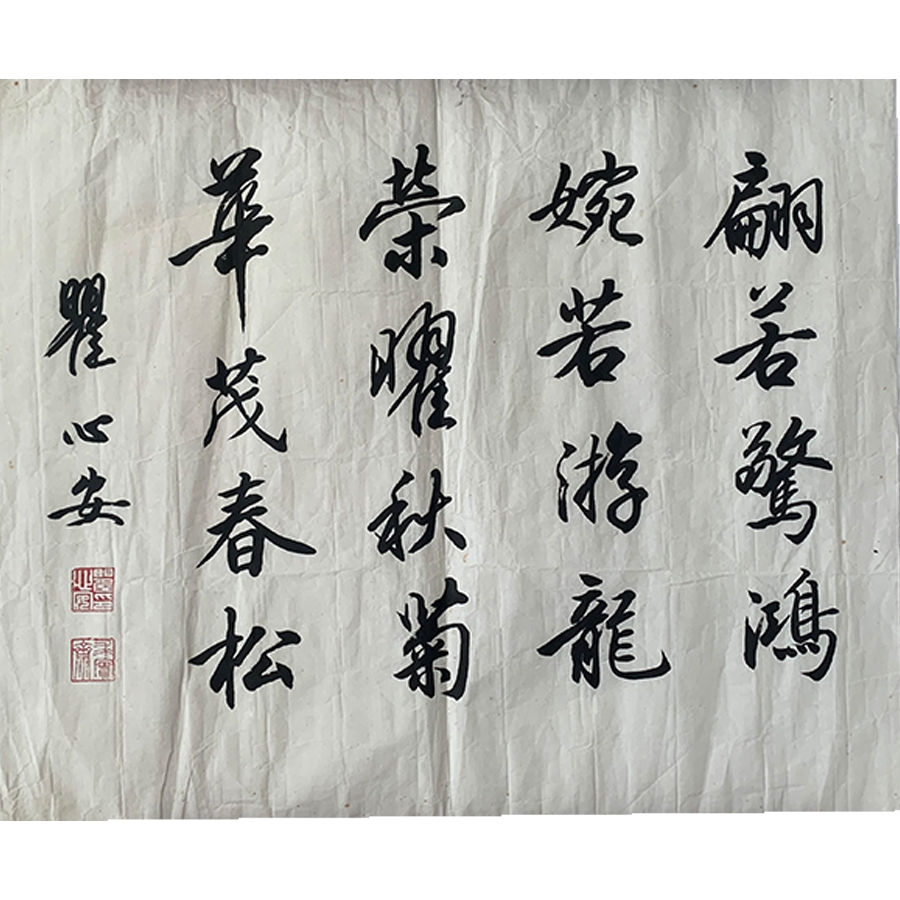 翩若驚鴻
婉若游龍
榮曜秋菊
華茂春松
瞿心安